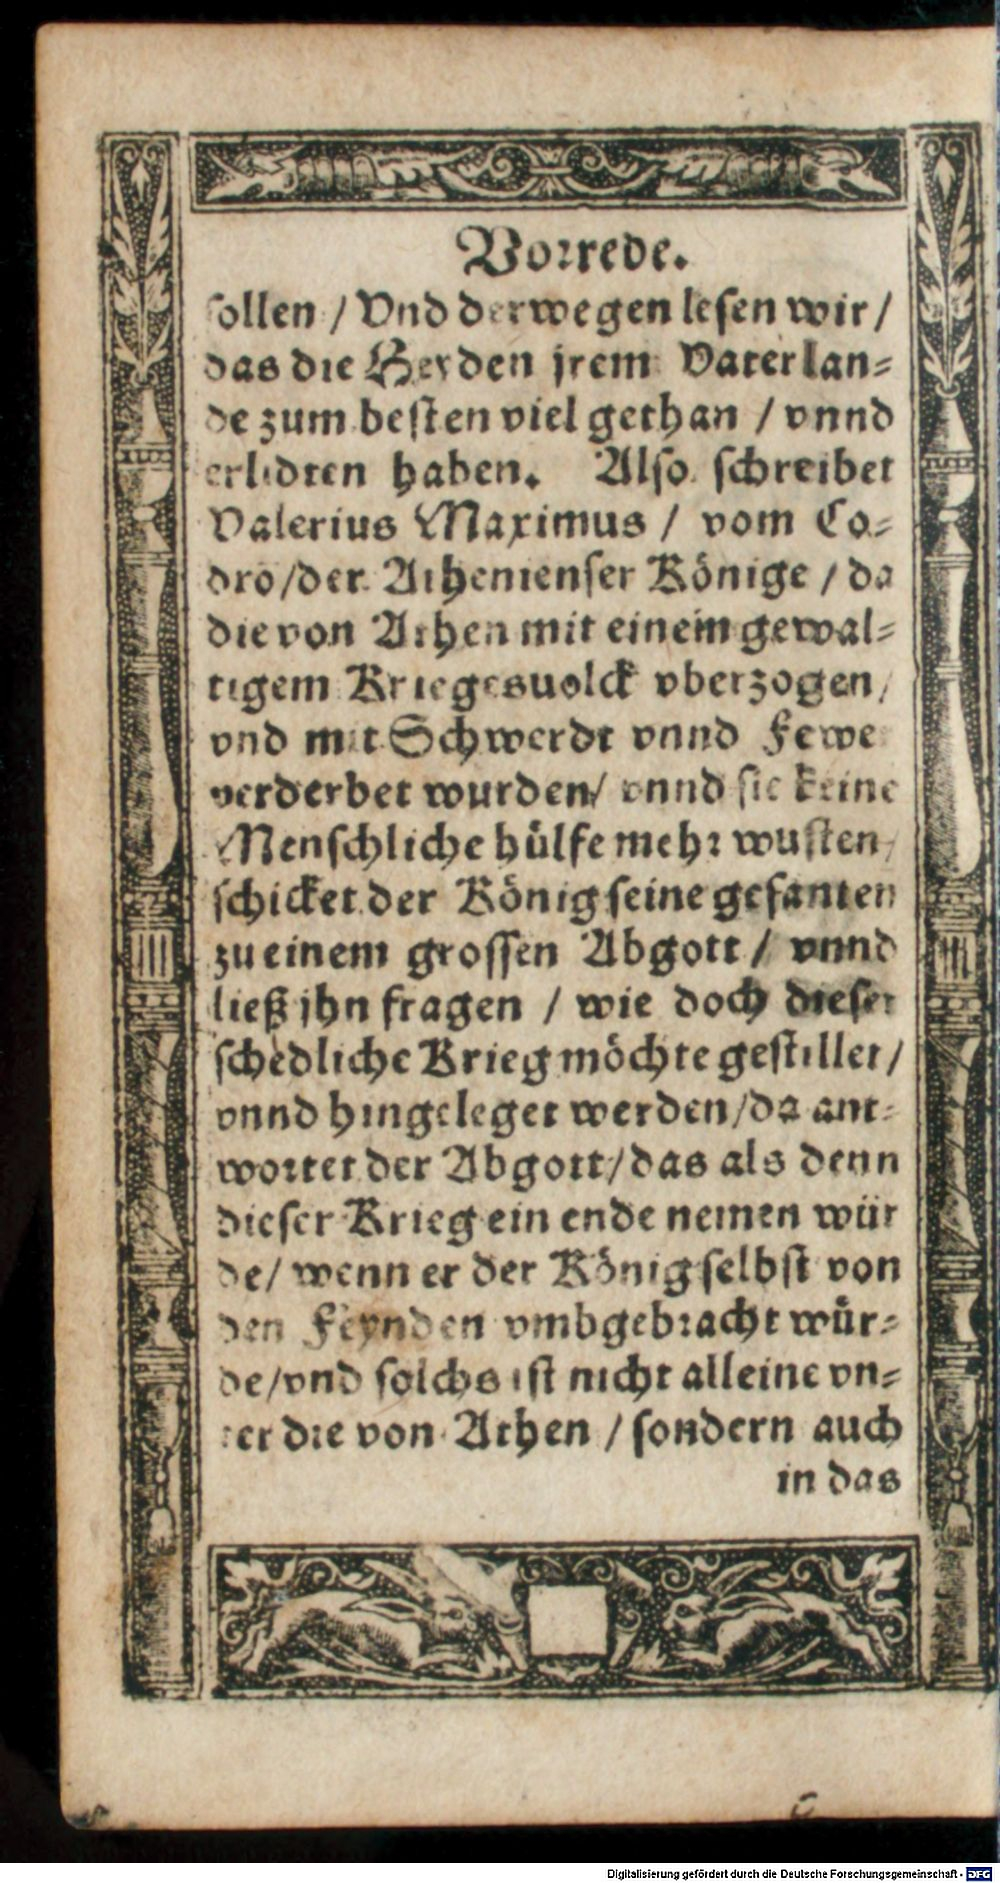 Vorrede.
sollen / Vnd derwegen lesen wir /
das die Heyden jrem Vaterlan=
de zum besten viel gethan / vnnd
erlidten haben. Also schreibet
Valerius Maximus / vom Co=
dro / der Athenienser Könige / da
die von Athen mit einem gewal=
tigem Kriegesuolck vberzogen /
vnd mit Schwerdt vnnd Fewer
verderbet wurden / vnnd sie keine
Menschliche hülfe mehr wusten /
schicket der König seine gesanten
zu einem grossen Abgott / vnnd
ließ jhn fragen / wie doch dieser
schedliche Krieg möchte gestillet /
vnnd hingeleget werden / da ant=
wortet der Abgott / das als denn
dieser Krieg ein ende nemen wür
de / wenn er der König selbst von
den Feynden vmbgebracht wür=
de / vnd solchs ist nicht alleine vn=
ter die von Athen / sondern auch
in das
Digitalisierung gefördert durch die Deutsche Forschungsgemeinschaft - DFG